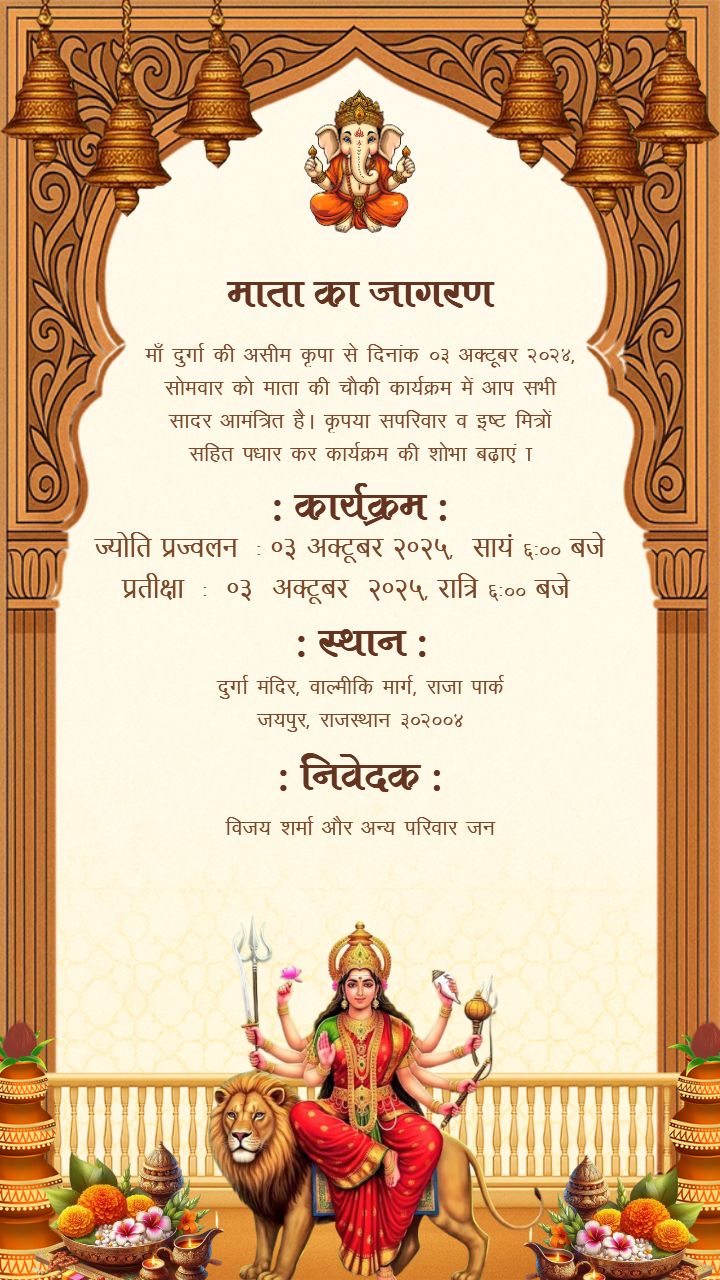 माता का जागरण
माँ दुर्गा की असीम कृपा से दिनांक ०३ अक्टूबर २०२४,
सोमवार को माता की चौकी कार्यक्रम में आप सभी
सादर आमंत्रित है। कृपया सपरिवार व इष्ट मित्रों
सहित पधार कर कार्यक्रम की शोभा बढ़ाएं ।
: कार्यक्रम :
ज्योति प्रज्वलन : ०३ अक्टूबर २०२५, सायं ६:०० बजे
प्रतीक्षा : ०३ अक्टूबर २०२५, रात्रि ६:०० बजे
: स्थान :
दुर्गा मंदिर, वाल्मीकि मार्ग, राजा पार्क
जयपुर, राजस्थान ३०२००४
: निवेदक :
विजय शर्मा और अन्य परिवार जन